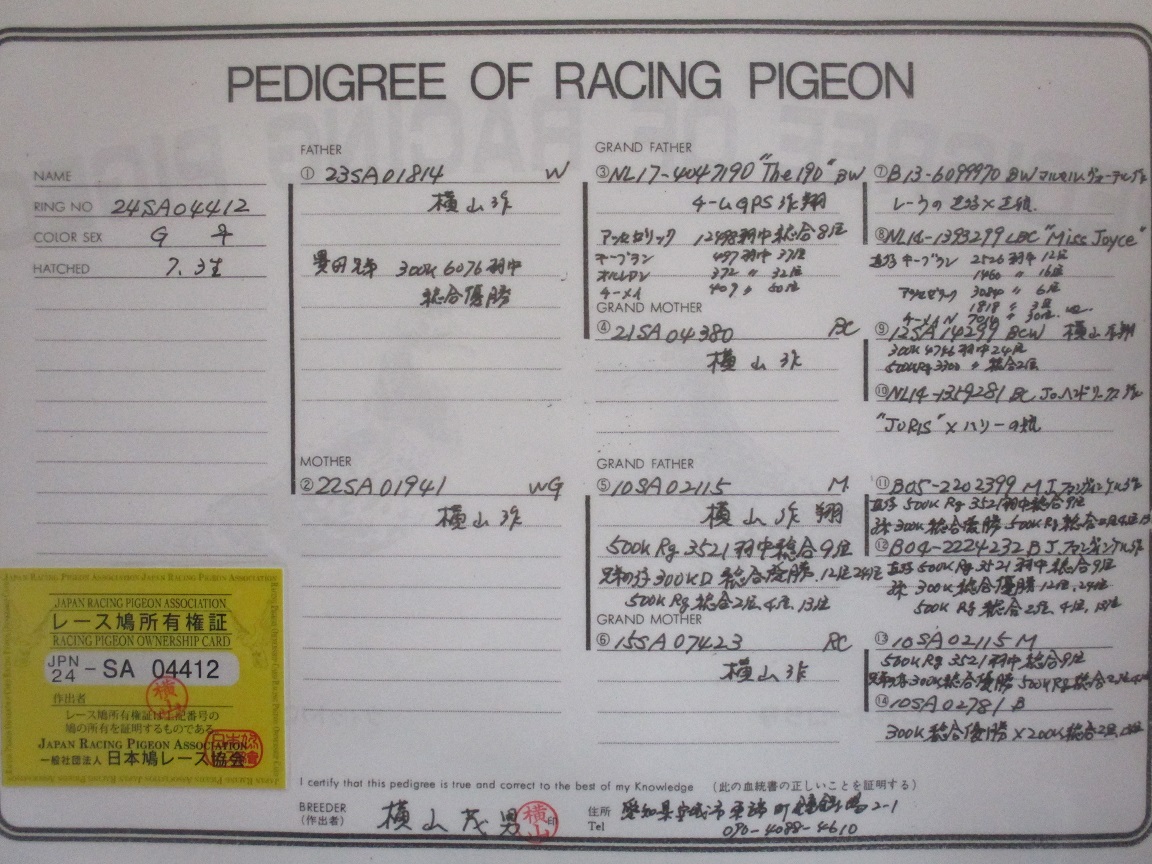 PEDIGREE OF RACING PIGEON
NAME
RING NO 24SA04412
COLOR SEX G ♀
HATCHED 7.3生
FATHER
① 23SA01814 W
横山作
300K 6076羽中
総合優勝
MOTHER
② 22SA01941 WG
横山作
GRAND FATHER
③ NL17-4047190 "The190" BW
チームGPS作翔
12498羽中総合8位
497羽中 37位
372 〃 32位
409 〃 60位
GRAND MOTHER
④ 21SA04380 BC
横山作
GRAND FATHER
⑤ 10SA02115 M
横山作翔
500K Rg 3521羽中総合9位
300KD 総合優勝 12位 24位
500K Rg 総合2位, 4位, 13位
GRAND MOTHER
⑥ 15SA07423 RC
横山作
⑦ B13-6099970 BW
⑧ NL14-1393299 LBC "Miss Joyce"
2526羽中 12位
1460 〃 16位
3084 〃 6位
1818 〃 3位
⑨ 12SA14299 BCW 横山作翔
300K 4746羽中24位
500KRg 3300 〃 総合2位
⑩ NL14-1359281 BC
"JORIS" × ハリーの娘
⑪ B05-2202399 M
500K Rg 3521羽中総合9位
300K 総合優勝 500K Rg 総合2位
⑫ B04-2224232 B
500K Rg 3521羽中 総合9位
300K 総合優勝 12位, 24位
500K Rg 総合2位, 4位, 13位
⑬ 10SA02115 M
500K Rg 3521羽中総合9位
300K総合優勝 500K Rg 総合2位
⑭ 10SA02781 B
300K 総合優勝 × 200K 総合2位
JAPAN RACING PIGEON ASSOCIATION
レース鳩所有権証
RACING PIGEON OWNERSHIP CARD
JPN 24 - SA 04412
作出者
横山
レース鳩所有権証は上記番号の
鳩の所有を証明するものである
JAPAN RACING PIGEON ASSOCIATION
一般社団法人 日本鳩レース協会
I certify that this pedigree is true and correct to the best of my Knowledge (此の血統書の正しいことを証明する)
BREEDER (作出者) 横山茂男 印 横山
住所 愛知県安城市 2-1
Tel 090-4088-4610